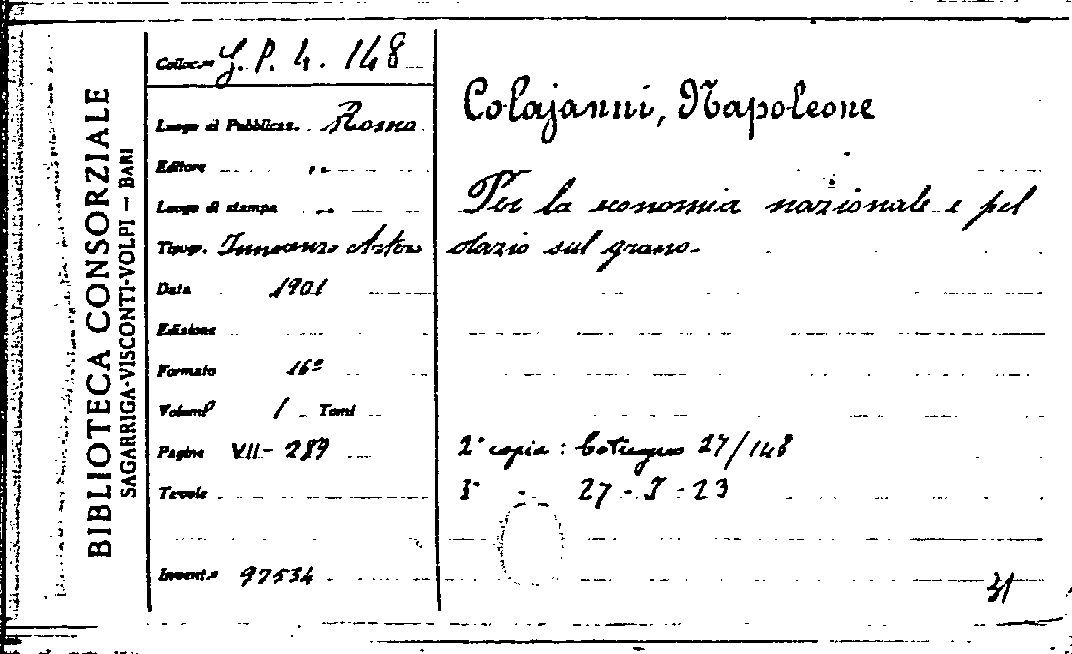 BIBLIOTECA CONSORZIALE
SAGARRIGA-VISCONTI-VOLPI — BARI
Colloc.ne G. P. 4. 148
Luogo di Pubblicaz. Roma
Editore „
Luogo di stampa „
Tipogr. Innocenzo Artero
Data 1901
Edizione
Formato 16°
Volumi 1 Tomi
Pagine VII - 289
Tavole
Invent.e 97534
Colajanni, Napoleone
Per la economia nazionale e pel
dazio sul grano.
2ª copia : Cotugno 27/148
3ª " 27 - I - 23
31